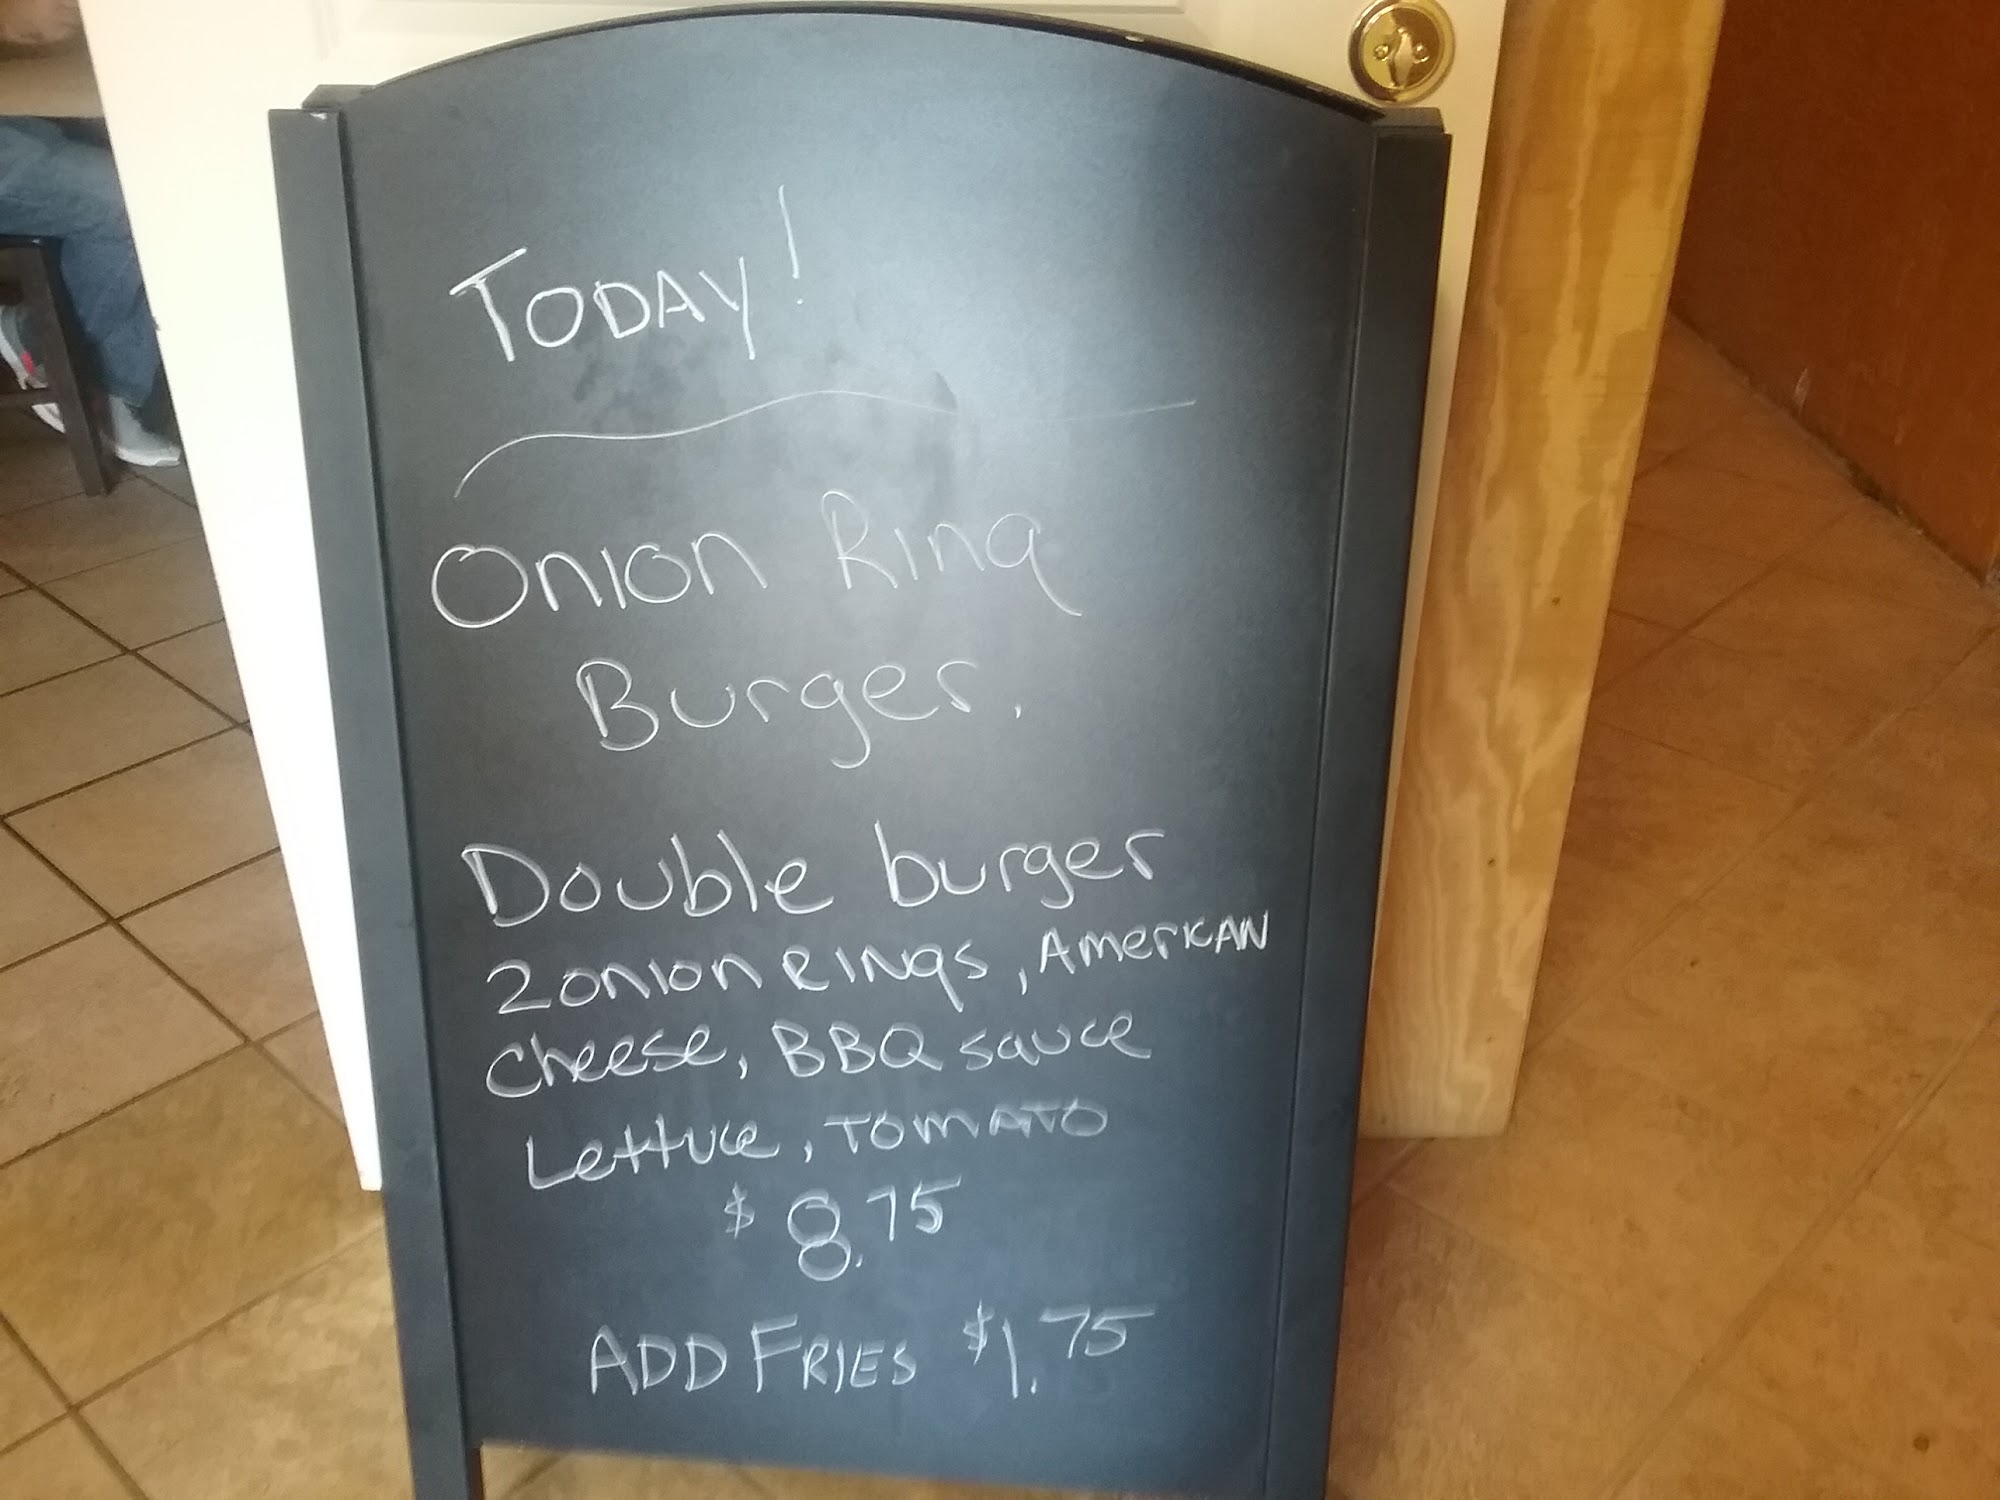 TODAY!
Onion Ring
Burger.
Double burger
2 onion Rings, American
cheese, BBQ sauce
Lettuce, TOMATO
$8.75
ADD FRIES $1.75